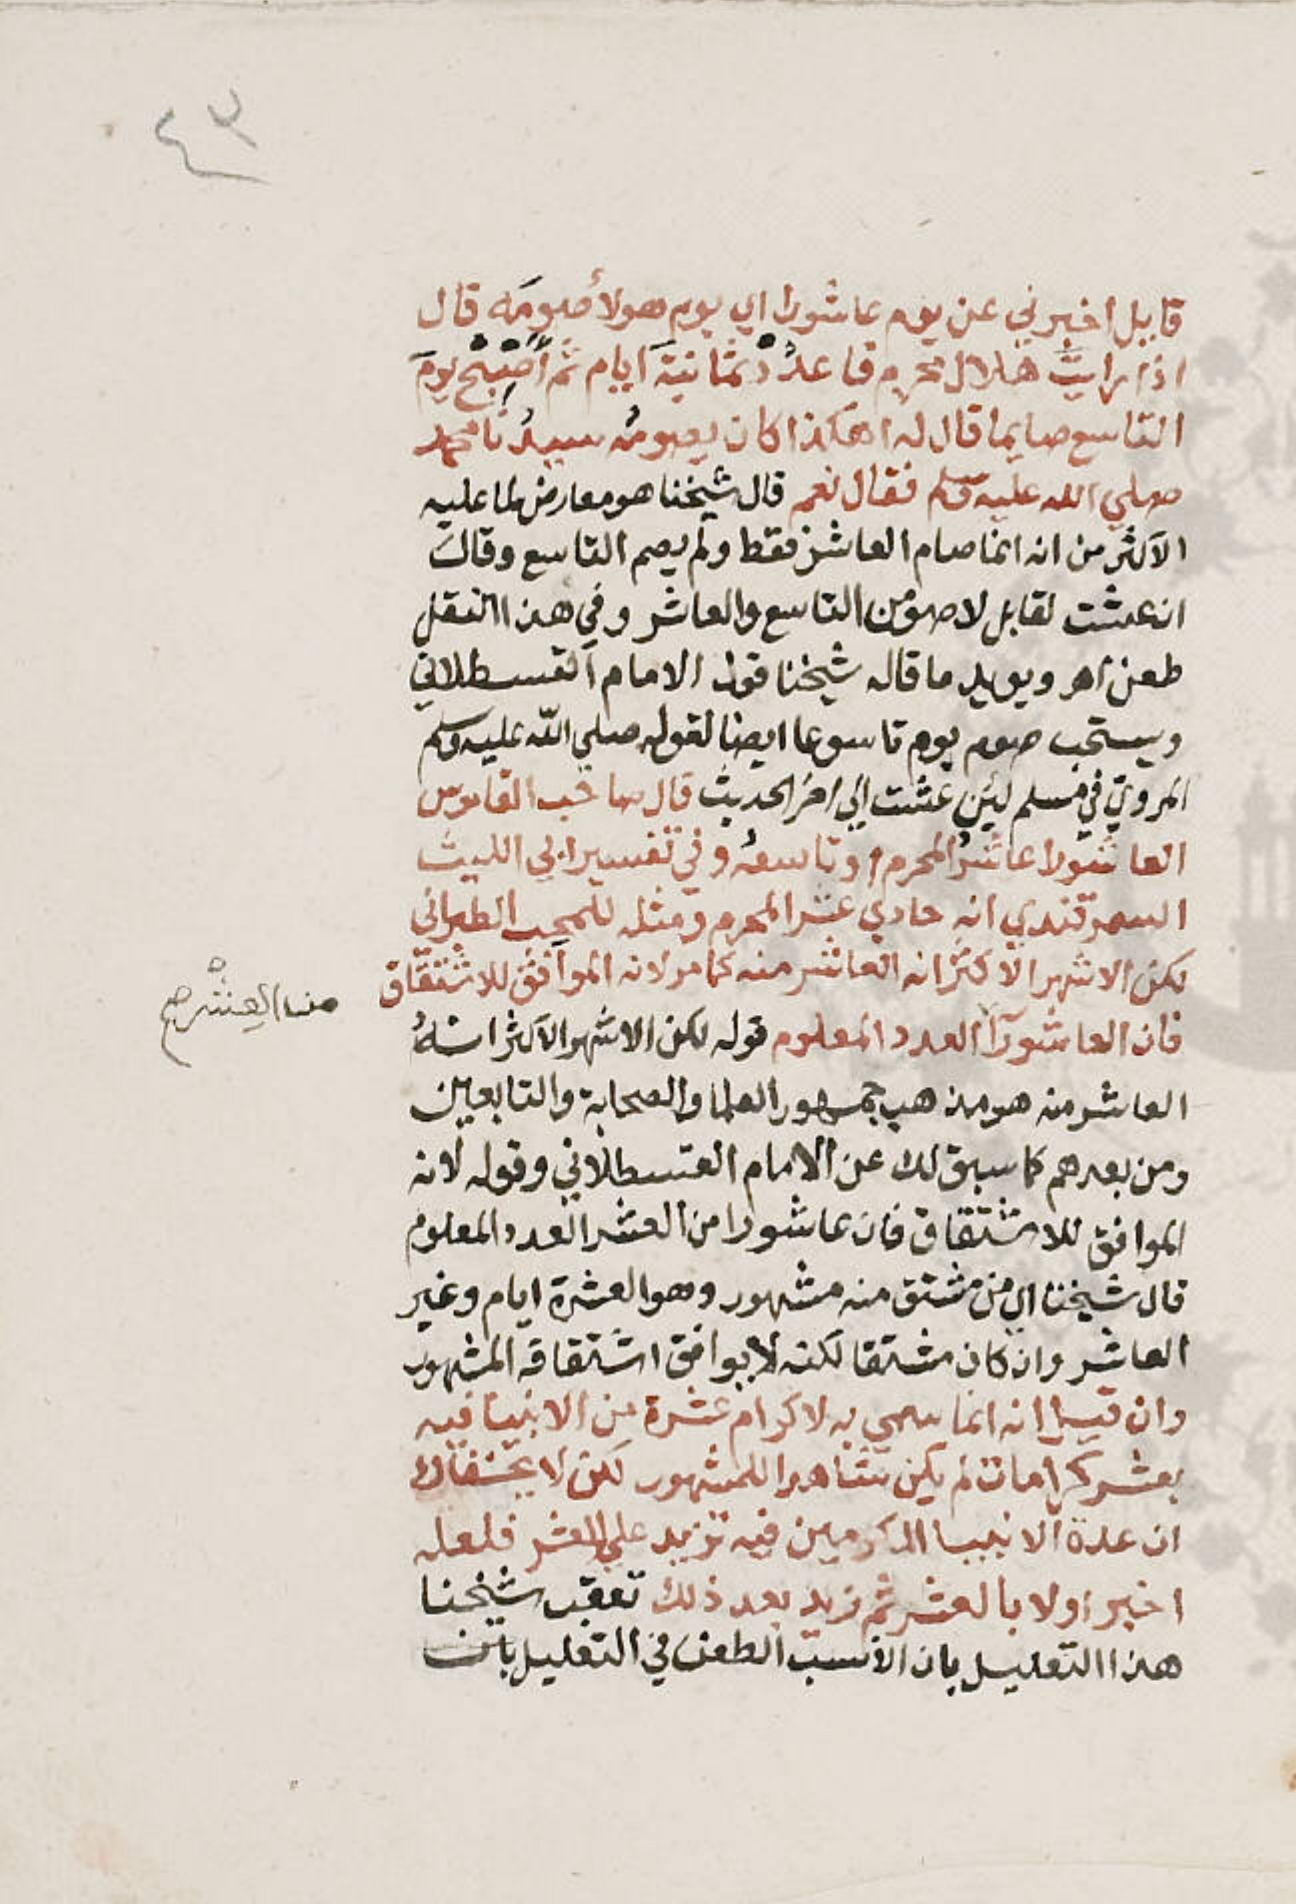 ٤٣
قايل اخبرني عن يوم عاشورا اي يوم هولأصومَه قال
اذا رايتَ هلال محرم فاعدُدْ ثمانيةَ ايام ثم أَصْبِحْ يومَ
التاسع صايما قال له اهكذا كان يصومُه سيدُنا محمد
صلي الله عليه وسلم فقال نعم قال شيخنا هو معارض لما عليه
الاكثر من انه انما صام العاشر فقط ولم يصم التاسع وقال
ان عشت لقابل لاصومن التاسع والعاشر وفي هذا النقل
طعن اهر ويويد ما قاله شيخنا قول الامام القسطلاني
ويستحب صوم يوم تاسوعا ايضا لقوله صلي الله عليه وسلم
المروي في مسلم لين عشت الي اخر الحديث قال صاحب القاموس
العاشورا عاشرُ المحرم او تاسعه وفي تفسير ابي الليث
السمرقندي انه حادي عشر المحرم ومثله للمحب الطبراني
لكن الاشهر الاكثر انه العاشر منه كما مر لانه الموافق للاشتقاق
من العشر صح
فان العاشورا العدد المعلوم قوله لكن الاشهر الاكثر انه
العاشر منه هو مذهب جمهور العلما والصحابة والتابعين
ومن بعدهم كما سبق لك عن الامام القسطلاني وقوله لانه
الموافق للاشتقاق فان عاشورا من العشر العدد المعلوم
قال شيخنا اي من مشتق منه مشهور وهو العشرة ايام وغير
العاشر وان كان مشتقا لكنه لا يوافق اشتقاقه المشهور
وان قيل انه انما سمي به لاكرام عشرة من الانبيا فيه
بعشر كرامات لم يكن شاهدا للمشهور لكن لا يخفاك
ان عدة الانبيا المكرمين فيه تزيد علي العشر فلعله
اخبر اولا بالعشر ثم زيد بعد ذلك تعقب شيخنا
هذا التعليل بان الانسب الطعن في التعليل بان